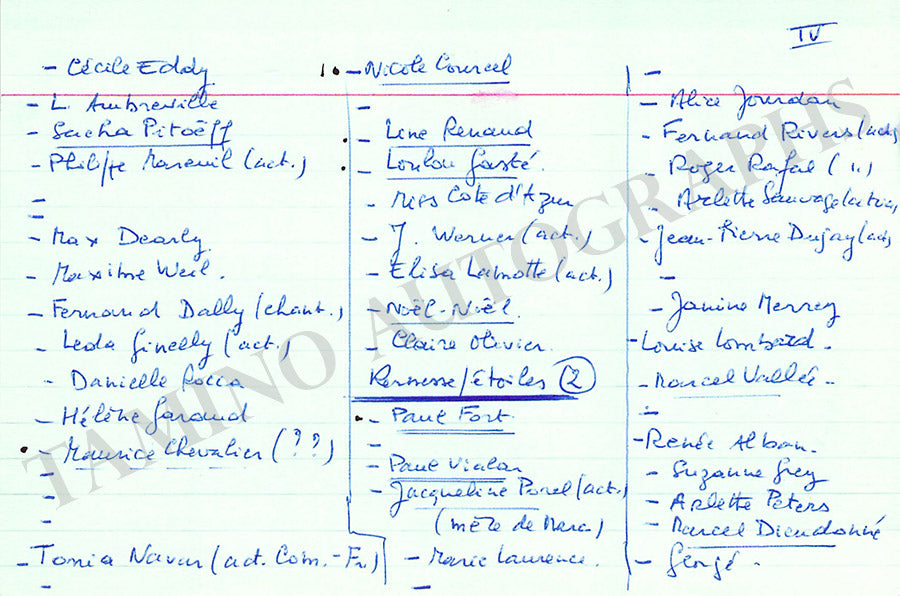 IV
- Cécile Eddy
- L. Ambreville
- Sacha Pitoëff
- Philippe Mareuil (act.)
-
-
- Max Dearly.
- Maxime Weil.
- Fernand Dally (chant.)
- Leda Ginelly (act.)
- Danielle Rocca
- Hélène Garaud
- Maurice Chevalier (??)
-
-
-
- Tonia Navar (act. Com.-Fr.)
10 - Nicole Courcel
-
- Line Renaud
- Loulou Gasté.
- Miss Côte d'Azur
- J. Werner (act.)
- Elisa Lamotte (act.)
- Noël-Noël.
- Claire Olivier.
Kermesse/étoiles (2)
- Paul Fort.
-
- Paul Vialar
- Jacqueline Porel (act.)
(mère de Marc)
- Marie Laurence.
-
-
- Alice Jourdan
- Fernand Rivers (act)
- Roger Rafal (")
- Arlette Sauvage
- Jean-Pierre Dujay (act)
-
- Janine Merrey
- Louise Lombard.
- Marcel Vallée.
-
- Renée Alban.
- Suzanne Grey
- Arlette Peters
- Marcel Dieudonné
- Georgé.
TAMINO AUTOGRAPHS